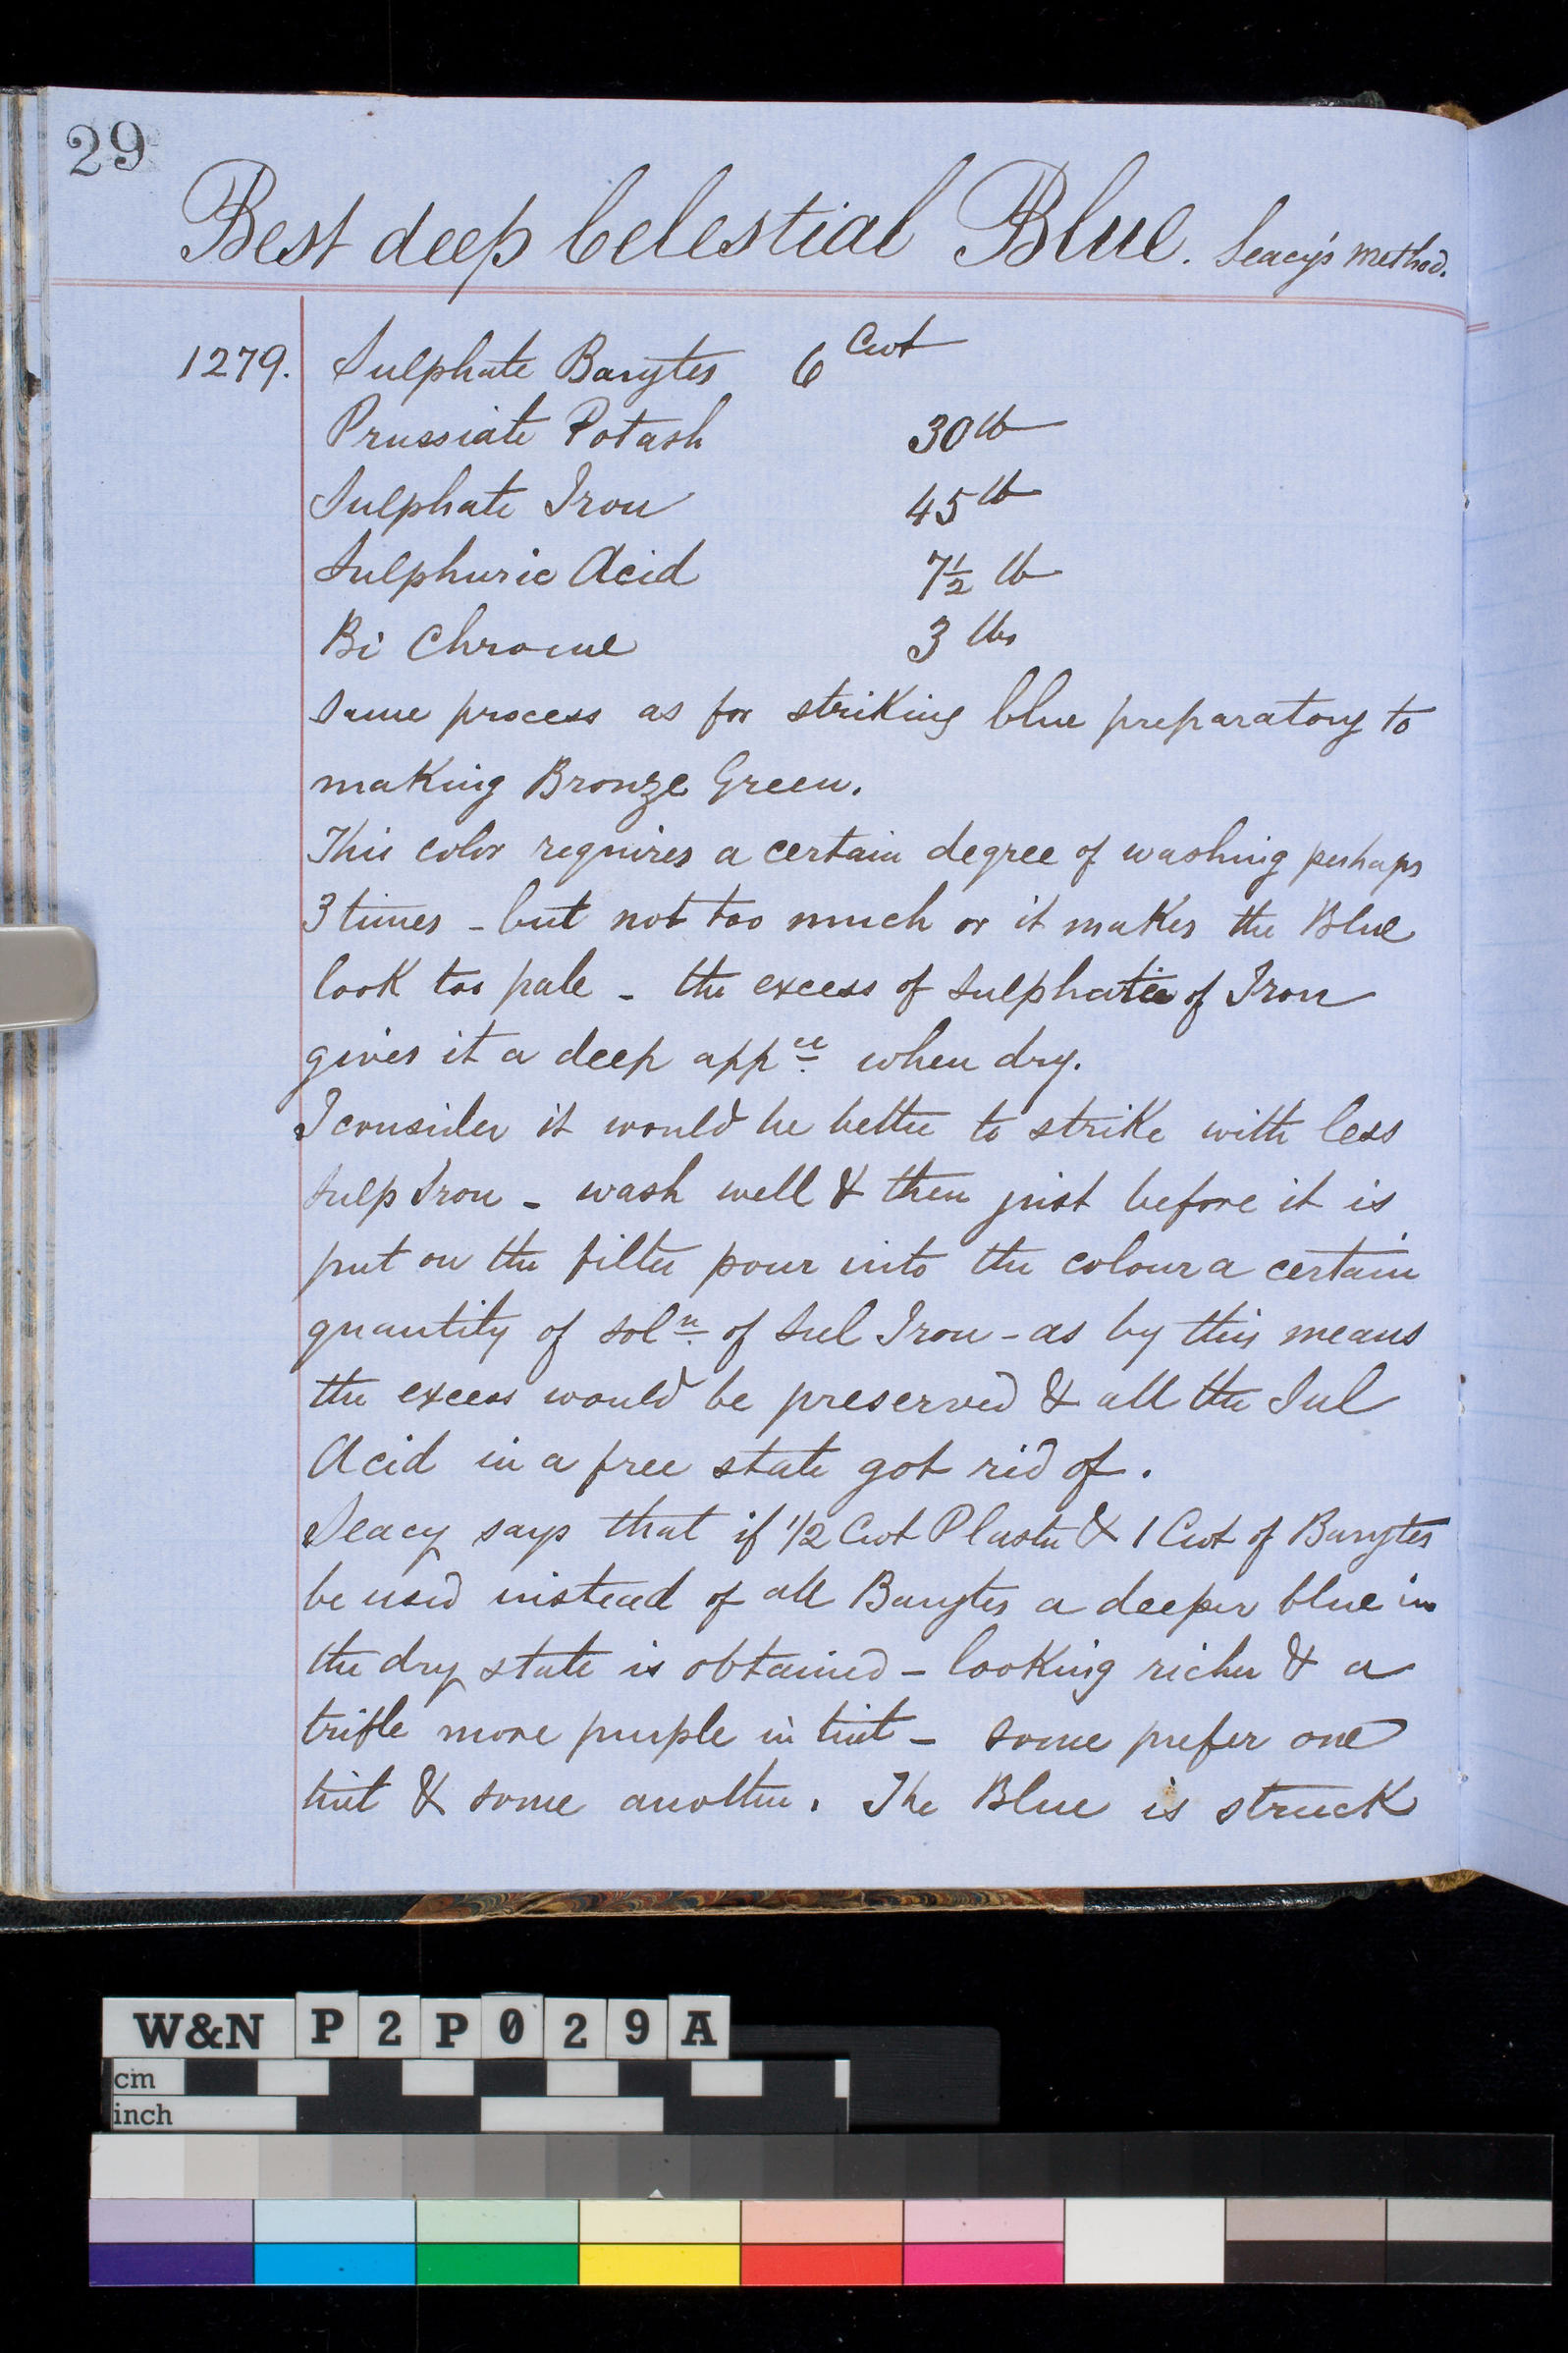 29
Best deep Celestial Blue. Seacy's method.
1279. Sulphate Barytes 6 Cwt
Prussiate Potash 30 lb
Sulphate Iron 45 lb
Sulphuric Acid 7½ lb
Bi Chrome 3 lbs
Same process as for striking blue preparatory to
making Bronze Green.
This color requires a certain degree of washing perhaps
3 times - but not too much or it makes the Blue
look too pale - the excess of sulphate of Iron
gives it a deep appce when dry.
I consider it would be better to strike with less
Sulp Iron - wash well & then just before it is
put on the filter pour into the colour a certain
quantity of soln of Sul Iron - as by this means
the excess would be preserved & all the Sul
Acid in a free state got rid of.
Seacy says that if 1/2 Cwt Plaster & 1 Cwt of Barytes
be used instead of all Barytes a deeper blue in
the dry state is obtained - looking richer & a
trifle more purple in tint - some prefer one
tint & some another. The Blue is struck
W&N P2P029A
cm
inch